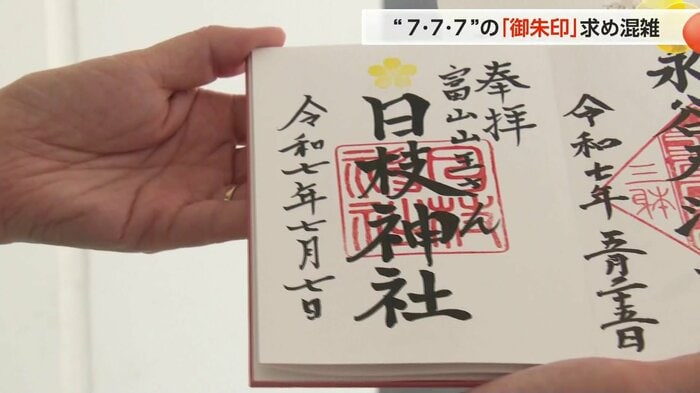 “7・7・7”の「御朱印」求め混雑
奉拝
富山山王さん
日枝神社
令和七年七月七日
令和七年
五月二十五日